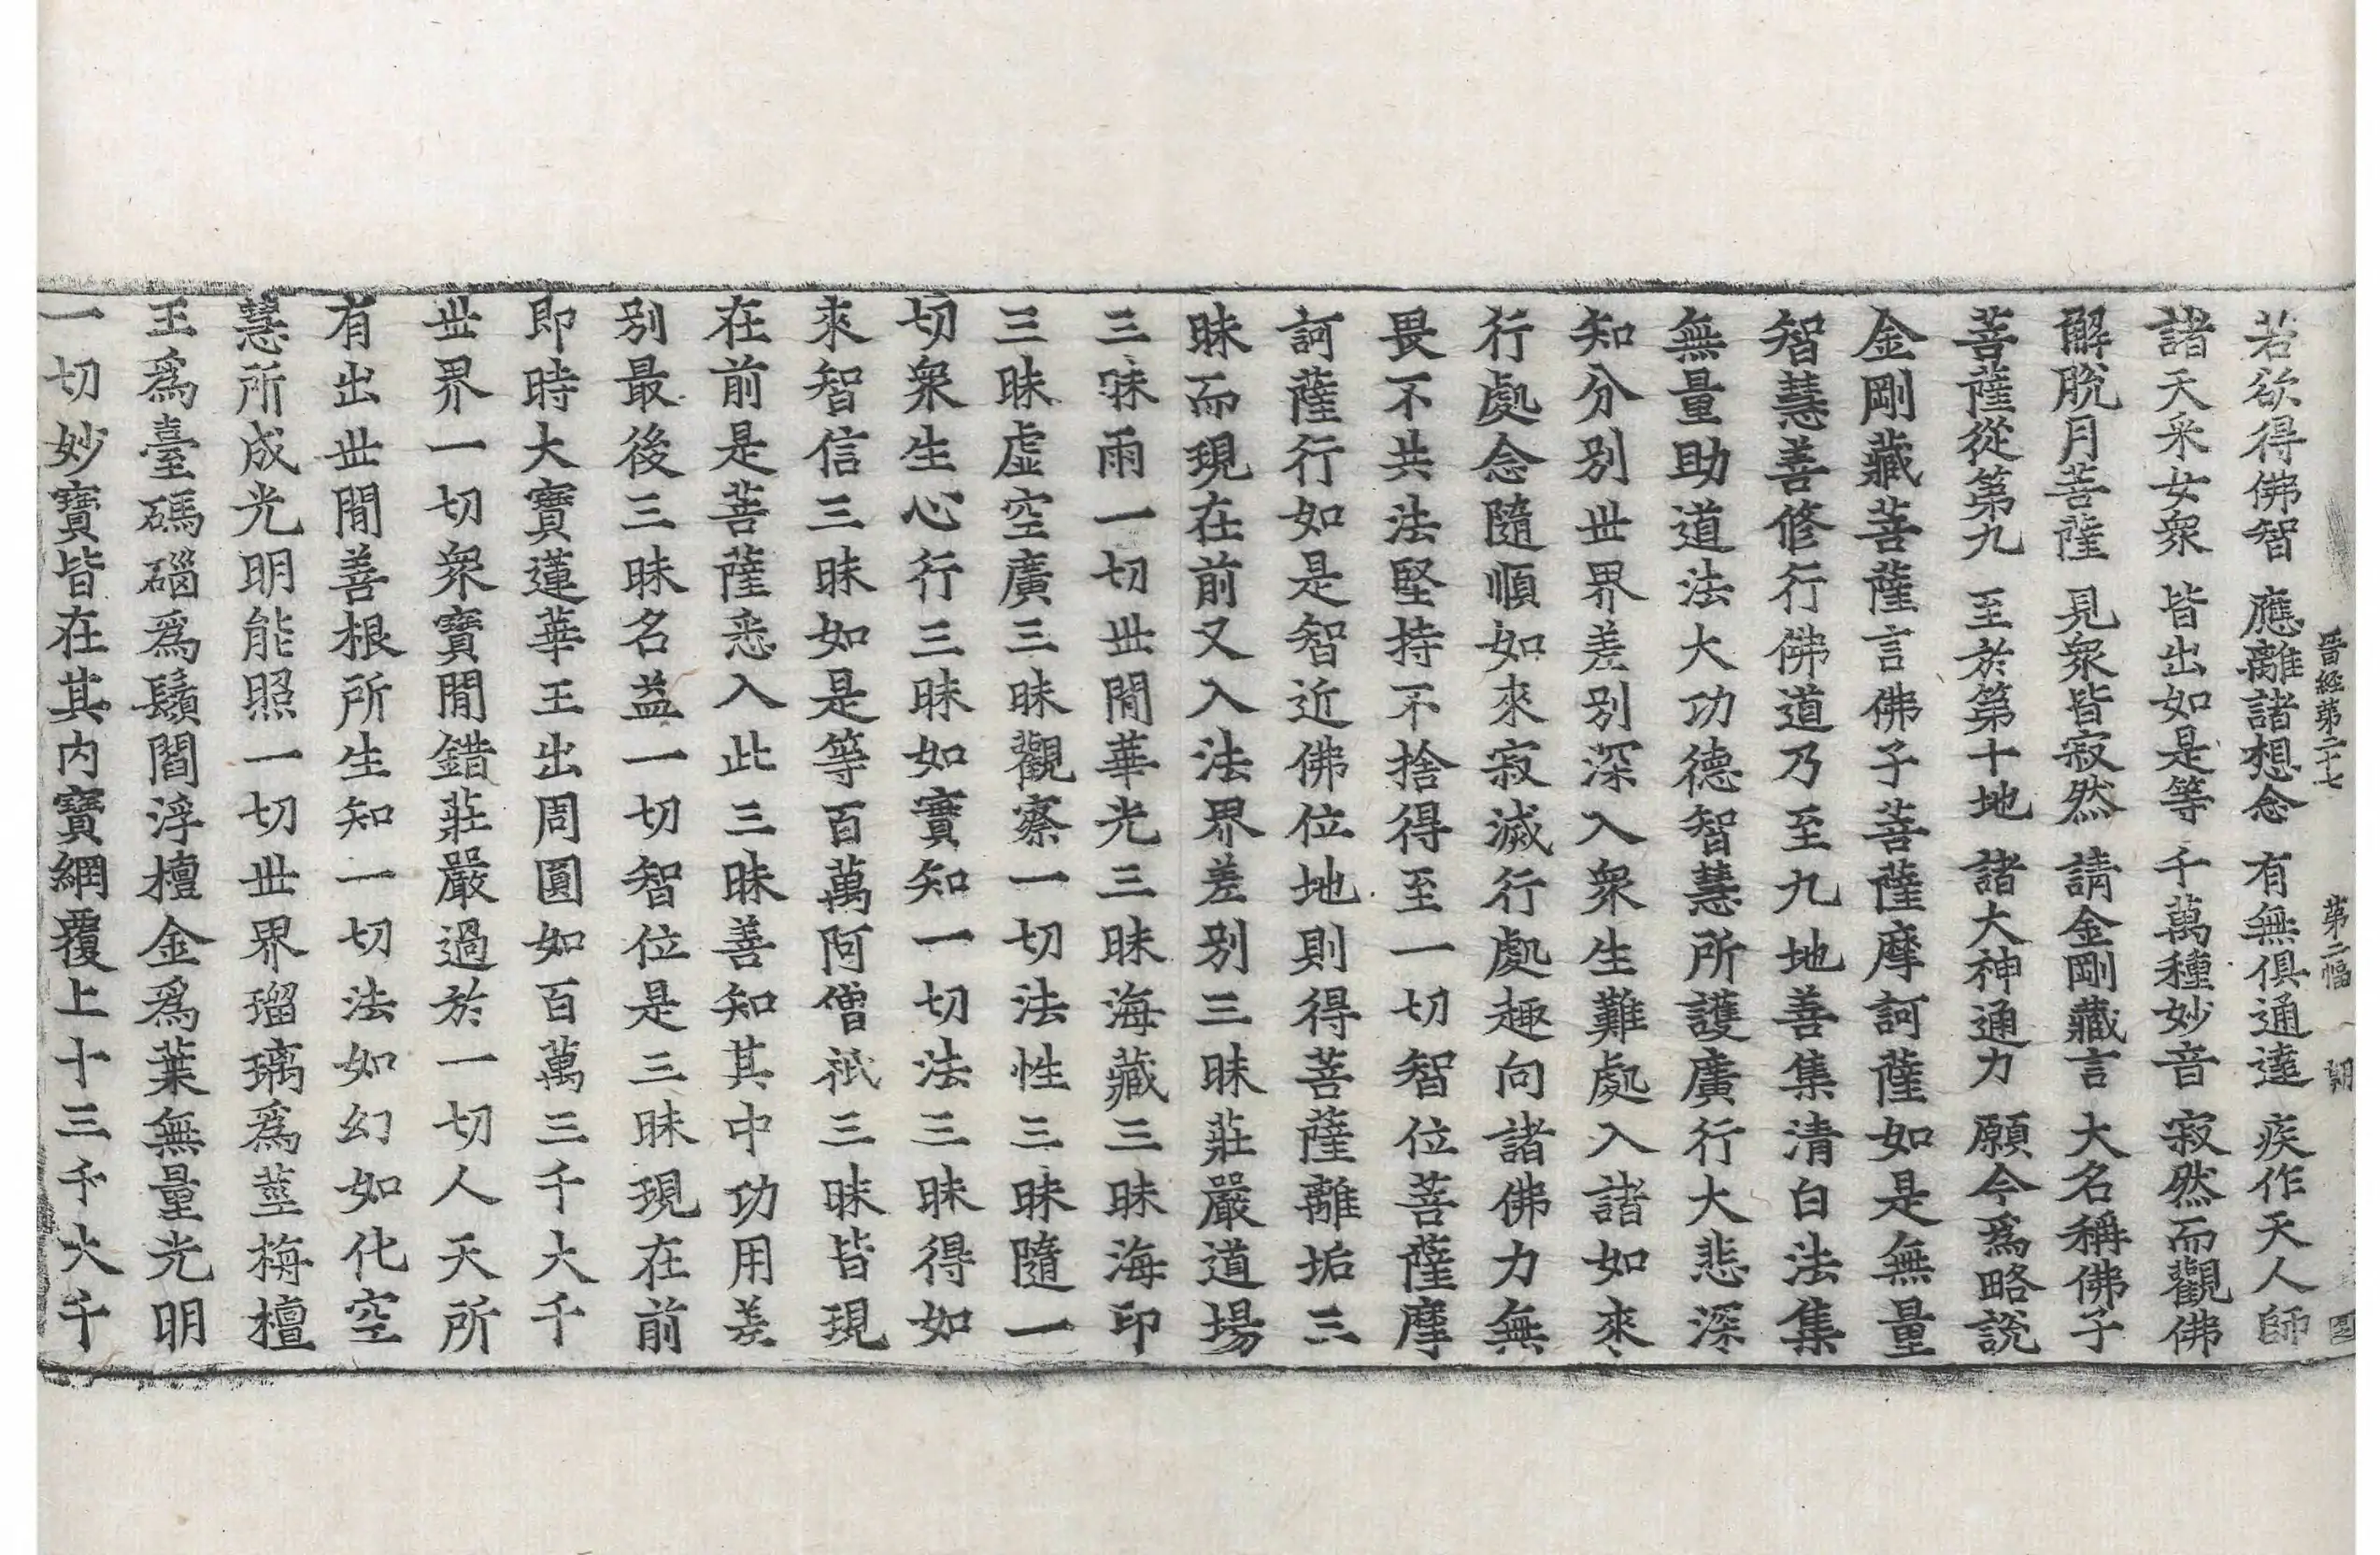 晋経第二十七 第二幅 朝
若欲得佛智 應離諸想念 有無俱通達 疾作天人師
諸天采女衆 皆出如是等 千萬種妙音 寂然而觀佛
解脫月菩薩 見衆皆寂然 請金剛藏言 大名稱佛子
菩薩從第九 至於第十地 諸大神通力 願今爲略說
金剛藏菩薩言佛子菩薩摩訶薩如是無量
智慧善修行佛道乃至九地善集清白法集
無量助道法大功德智慧所護廣行大悲深
知分別世界差別深入衆生難處入諸如來
行處念隨順如來寂滅行處趣向諸佛力無
畏不共法堅持不捨得至一切智位菩薩摩
訶薩行如是智近佛位地則得菩薩離垢三
昧而現在前又入法界差別三昧莊嚴道場
三昧雨一切世閒華光三昧海藏三昧海印
三昧虛空廣三昧觀察一切法性三昧隨一
切衆生心行三昧如實知一切法三昧得如
來智信三昧如是等百萬阿僧祇三昧皆現
在前是菩薩悉入此三昧善知其中功用差
別最後三昧名益一切智位是三昧現在前
即時大寶蓮華王出周圓如百萬三千大千
世界一切衆寶閒錯莊嚴過於一切人天所
有出世閒善根所生知一切法如幻如化空
慧所成光明能照一切世界瑠璃爲莖栴檀
王爲臺碼碯爲鬚閻浮檀金爲葉無量光明
一切妙寶皆在其內寶網覆上十三千大千